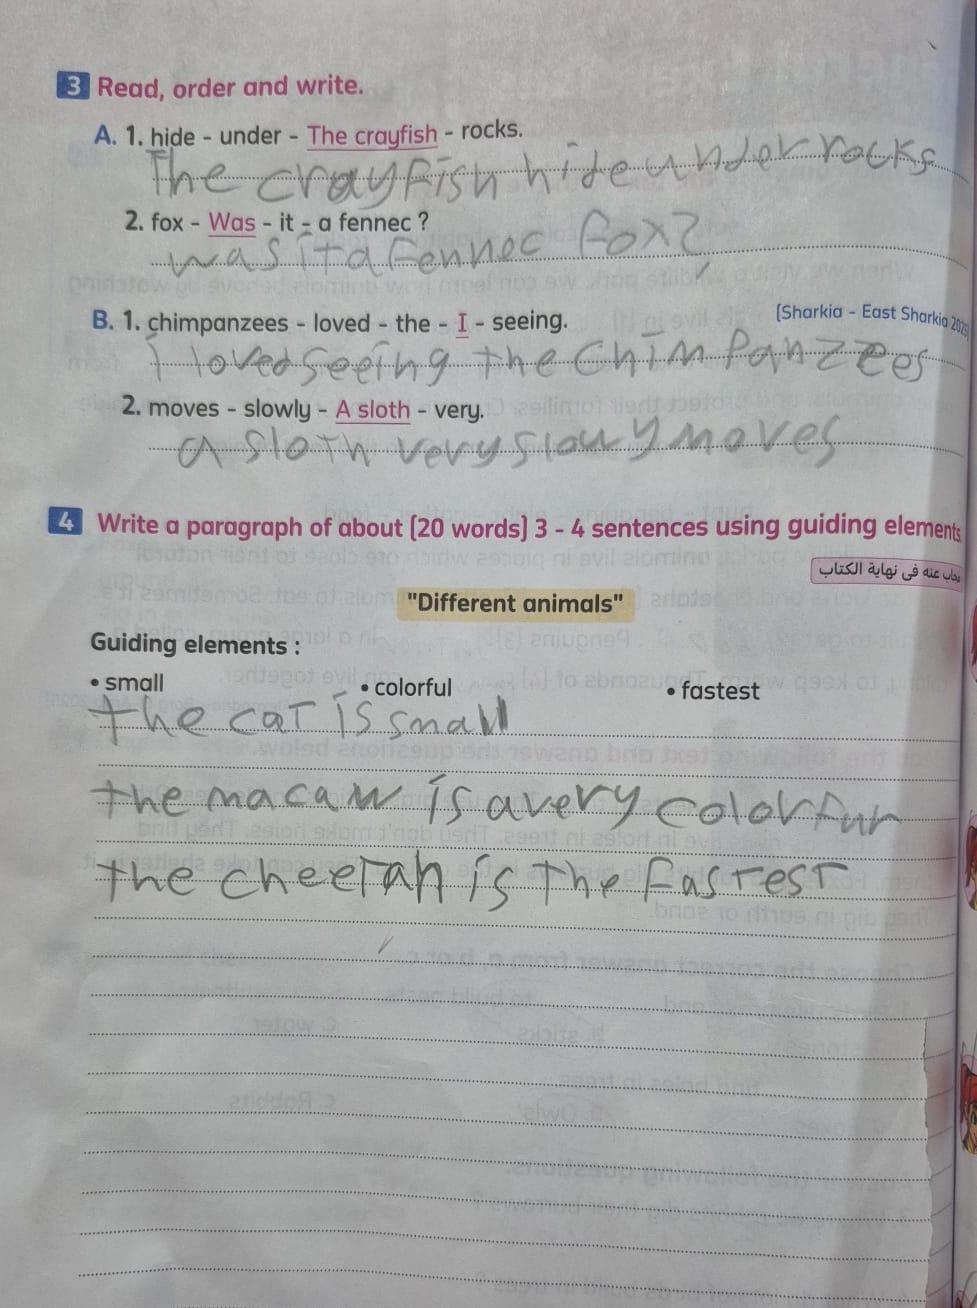 3 Read, order and write.
A. 1. hide - under - The crayfish - rocks.
The crayfish hide under rocks
2. fox - Was - it - a fennec ?
was it a fennec fox?
[Sharkia - East Sharkia 2025]
B. 1. chimpanzees - loved - the - I - seeing.
i loved seeing the chimpanzees
2. moves - slowly - A sloth - very.
a sloth very slowly moves
4 Write a paragraph of about [20 words] 3 - 4 sentences using guiding elements
مجاب عنه فى نهاية الكتاب
"Different animals"
Guiding elements :
• small • colorful • fastest
the cat is small
the macaw is a very colorfur
the cheetah is the fastest